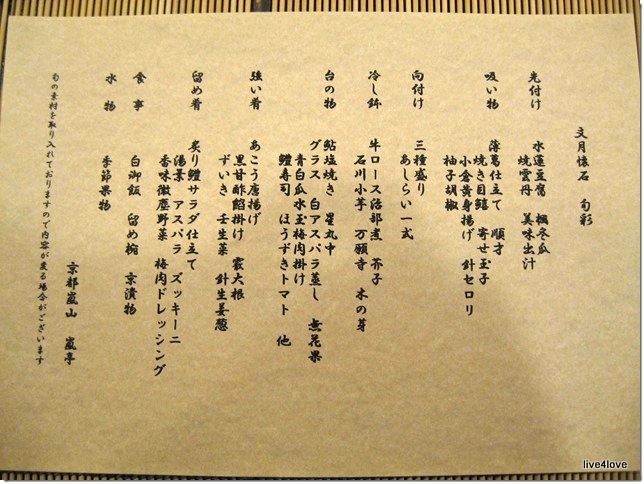 文月懐石　旬彩
先付け　水蓮豆腐　楓冬瓜
焼雲丹　美味出汁
吸い物　薄葛仕立て　順才
焼き目鱧　寄せ玉子
小倉黄身揚げ　針セロリ
柚子胡椒
向付け　三種盛り
あしらい一式
冷し鉢　牛ロース治部煮　芥子
石川小芋　万願寺　木の芽
台の物　鮎塩焼き　星丸十
グラス　白アスパラ蒸し　無花果
青白瓜水玉梅肉掛け
鱧寿司　ほうずきトマト　他
強い肴　あこう唐揚げ
黒甘酢餡掛け　霙大根
ずいき　壬生菜　針生姜葱
留め肴　炙り鱧サラダ仕立て
湯葉　アスパラ　ズッキーニ
香味微塵野菜　梅肉ドレッシング
食事　白御飯　留め椀　京漬物
水物　季節果物
京都嵐山　嵐亭
旬の素材を取り入れておりますので内容が変る場合がございます
live4love